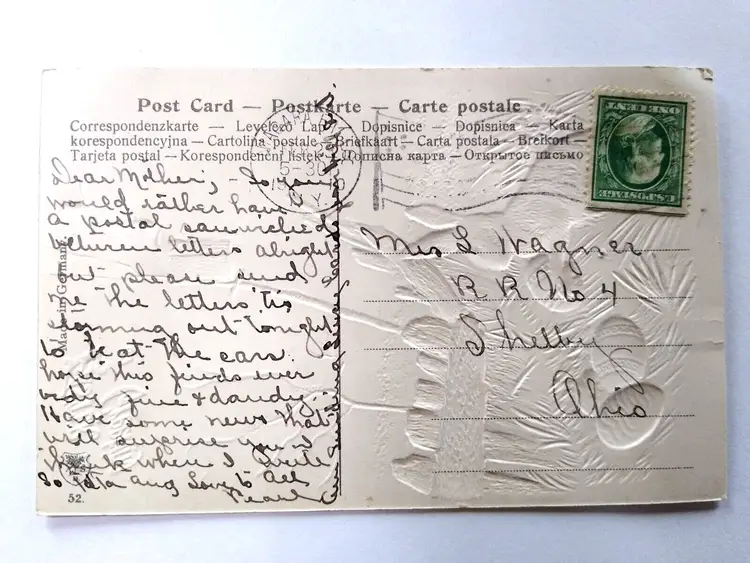 Post Card — Postkarte — Carte postale
Correspondenzkarte — Levelező Lap — Dopisnice — Dopisnica — Karta
korespondencyjna — Cartolina postale — Briefkaart — Carta postala — Brefkort —
Tarjeta postal — Korespondenční lístek — Дописна карта — Открытое письмо
Dear Mother, — So you
would rather have
a postal sanwiched
between letters alright
but please send
me the letters 'tis
coming out tonight
to at the cars
hope this finds ever
body fine & dandy.
Have some news that
will surprise you I
think when I write
So Love to all
Pearl
Made in Germany
52.
5-30
N.Y.
U.S. POSTAGE
ONE CENT
Mrs L Wagner
R R No 4
Shelby
Ohio